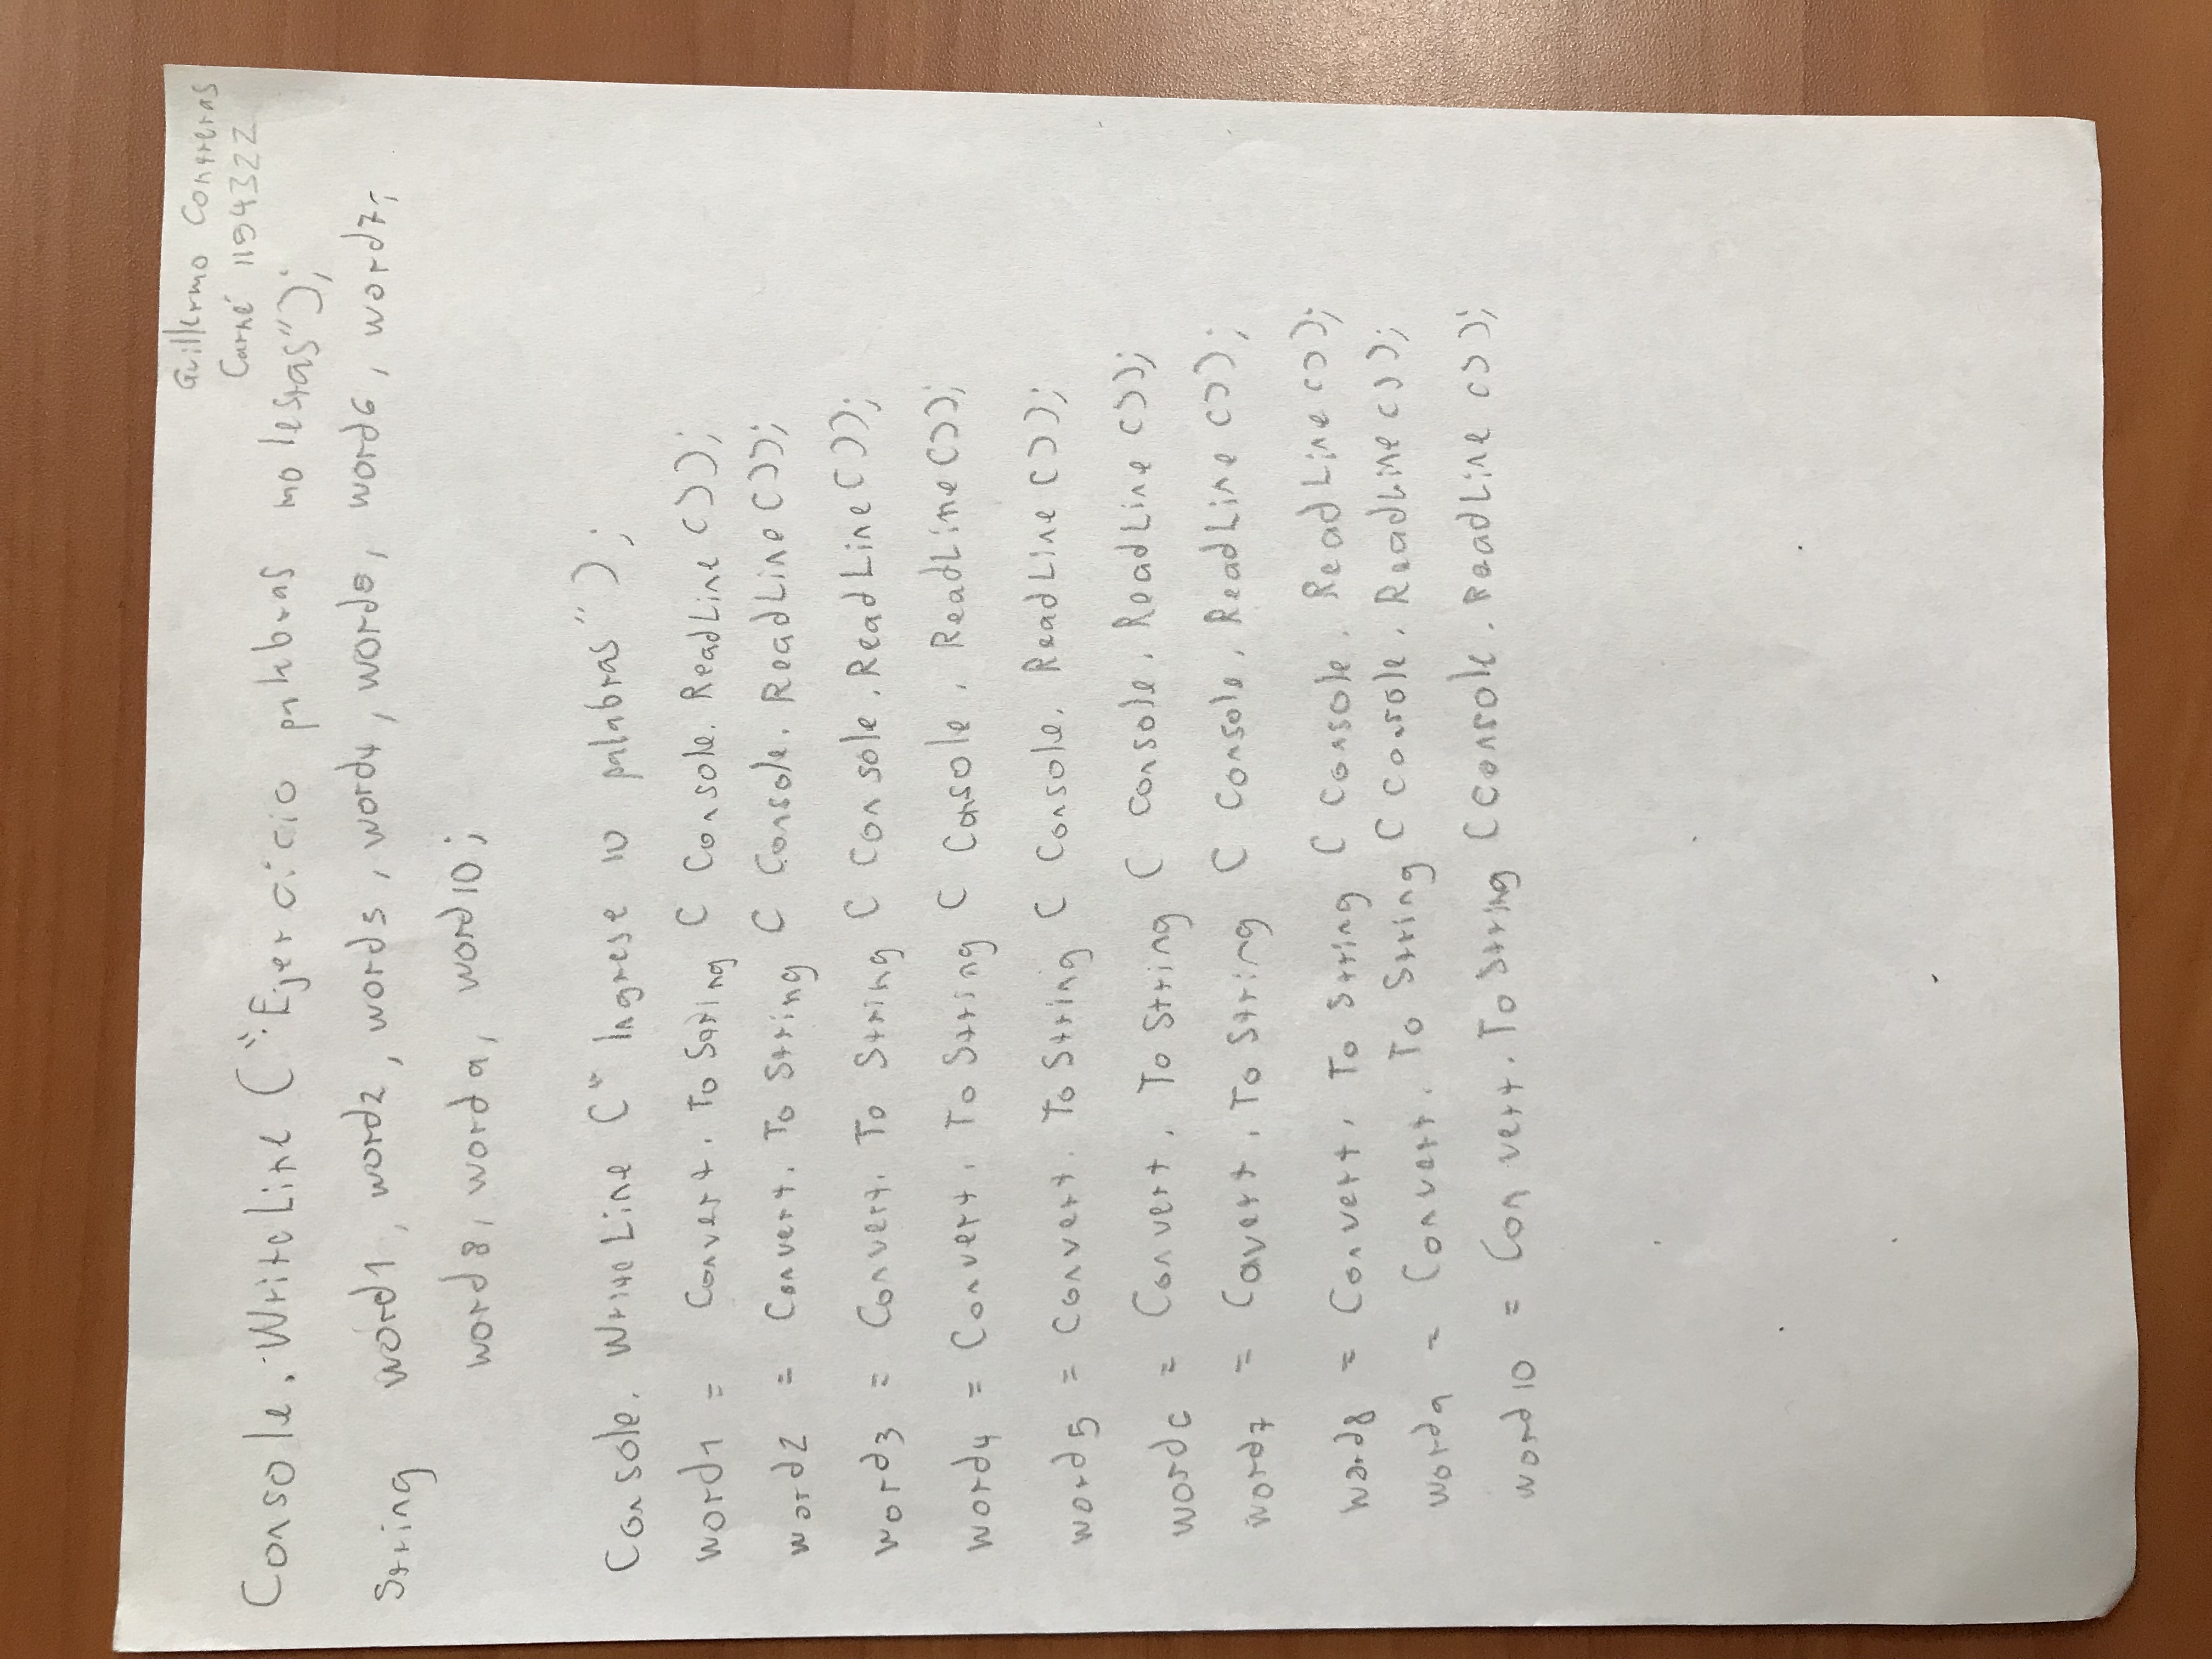 Guillermo Contreras
Carné 1194322
Console. WriteLine ("Ejercicio palabras molestas");
String word1, word2, word3, word4, word5, word6, word7,
word8, word9, word10;
Console. WriteLine (" Ingrese 10 palabras");
word1 = Convert. ToString ( Console. ReadLine ());
word2 = Convert. To String ( Console. ReadLine ());
word3 = Convert. To String ( Console. ReadLine ());
word4 = Convert. To String ( Console. ReadLine ());
word5 = Convert. To String ( Console. ReadLine ());
word6 = Convert. To String ( Console. ReadLine ());
word7 = Covert. To String ( Console. ReadLine ());
word8 = Convert. To String ( Console. ReadLine ());
word9 = Convert. To String ( Console. ReadLine ());
word10 = Convert. To String (Console. ReadLine ());